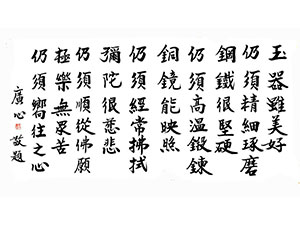 玉器雖美好
仍須精細琢磨
鋼鐵很堅硬
仍須高溫鍛鍊
銅鏡能映照
仍須經常拂拭
彌陀很慈悲
仍須順從佛願
極樂無眾苦
仍須嚮往之心
廣心敬題